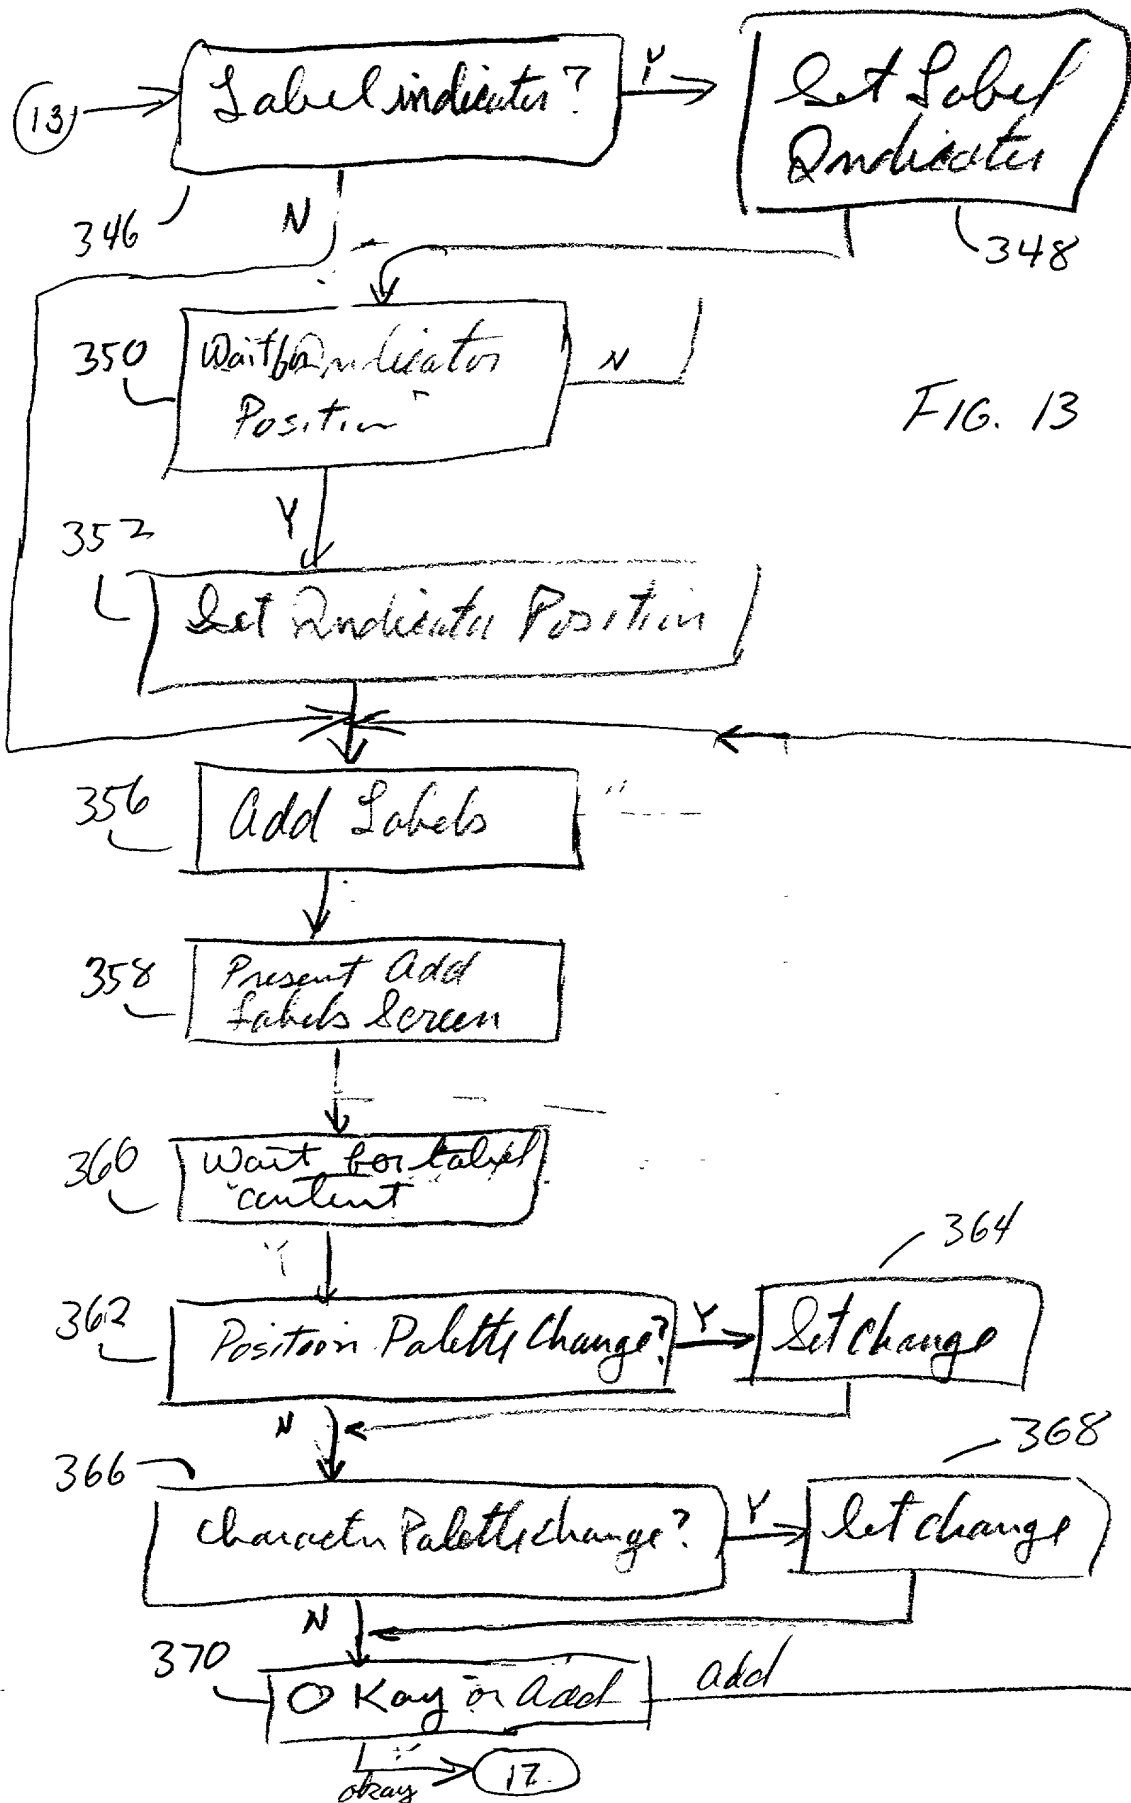 13
Label indicator?
Y
Set Label
Indicator
346
N
348
350
Wait for Indicator
Position
N
FIG. 13
Y
352
Set Indicator Position
356
Add Labels
358
Present Add
Labels Screen
360
Wait for label
content
Y
364
362
Position Palette Change?
Y
Set change
N
368
366
Character Palette change?
Y
Set change
N
370
OKay or Add
Add
okay
17